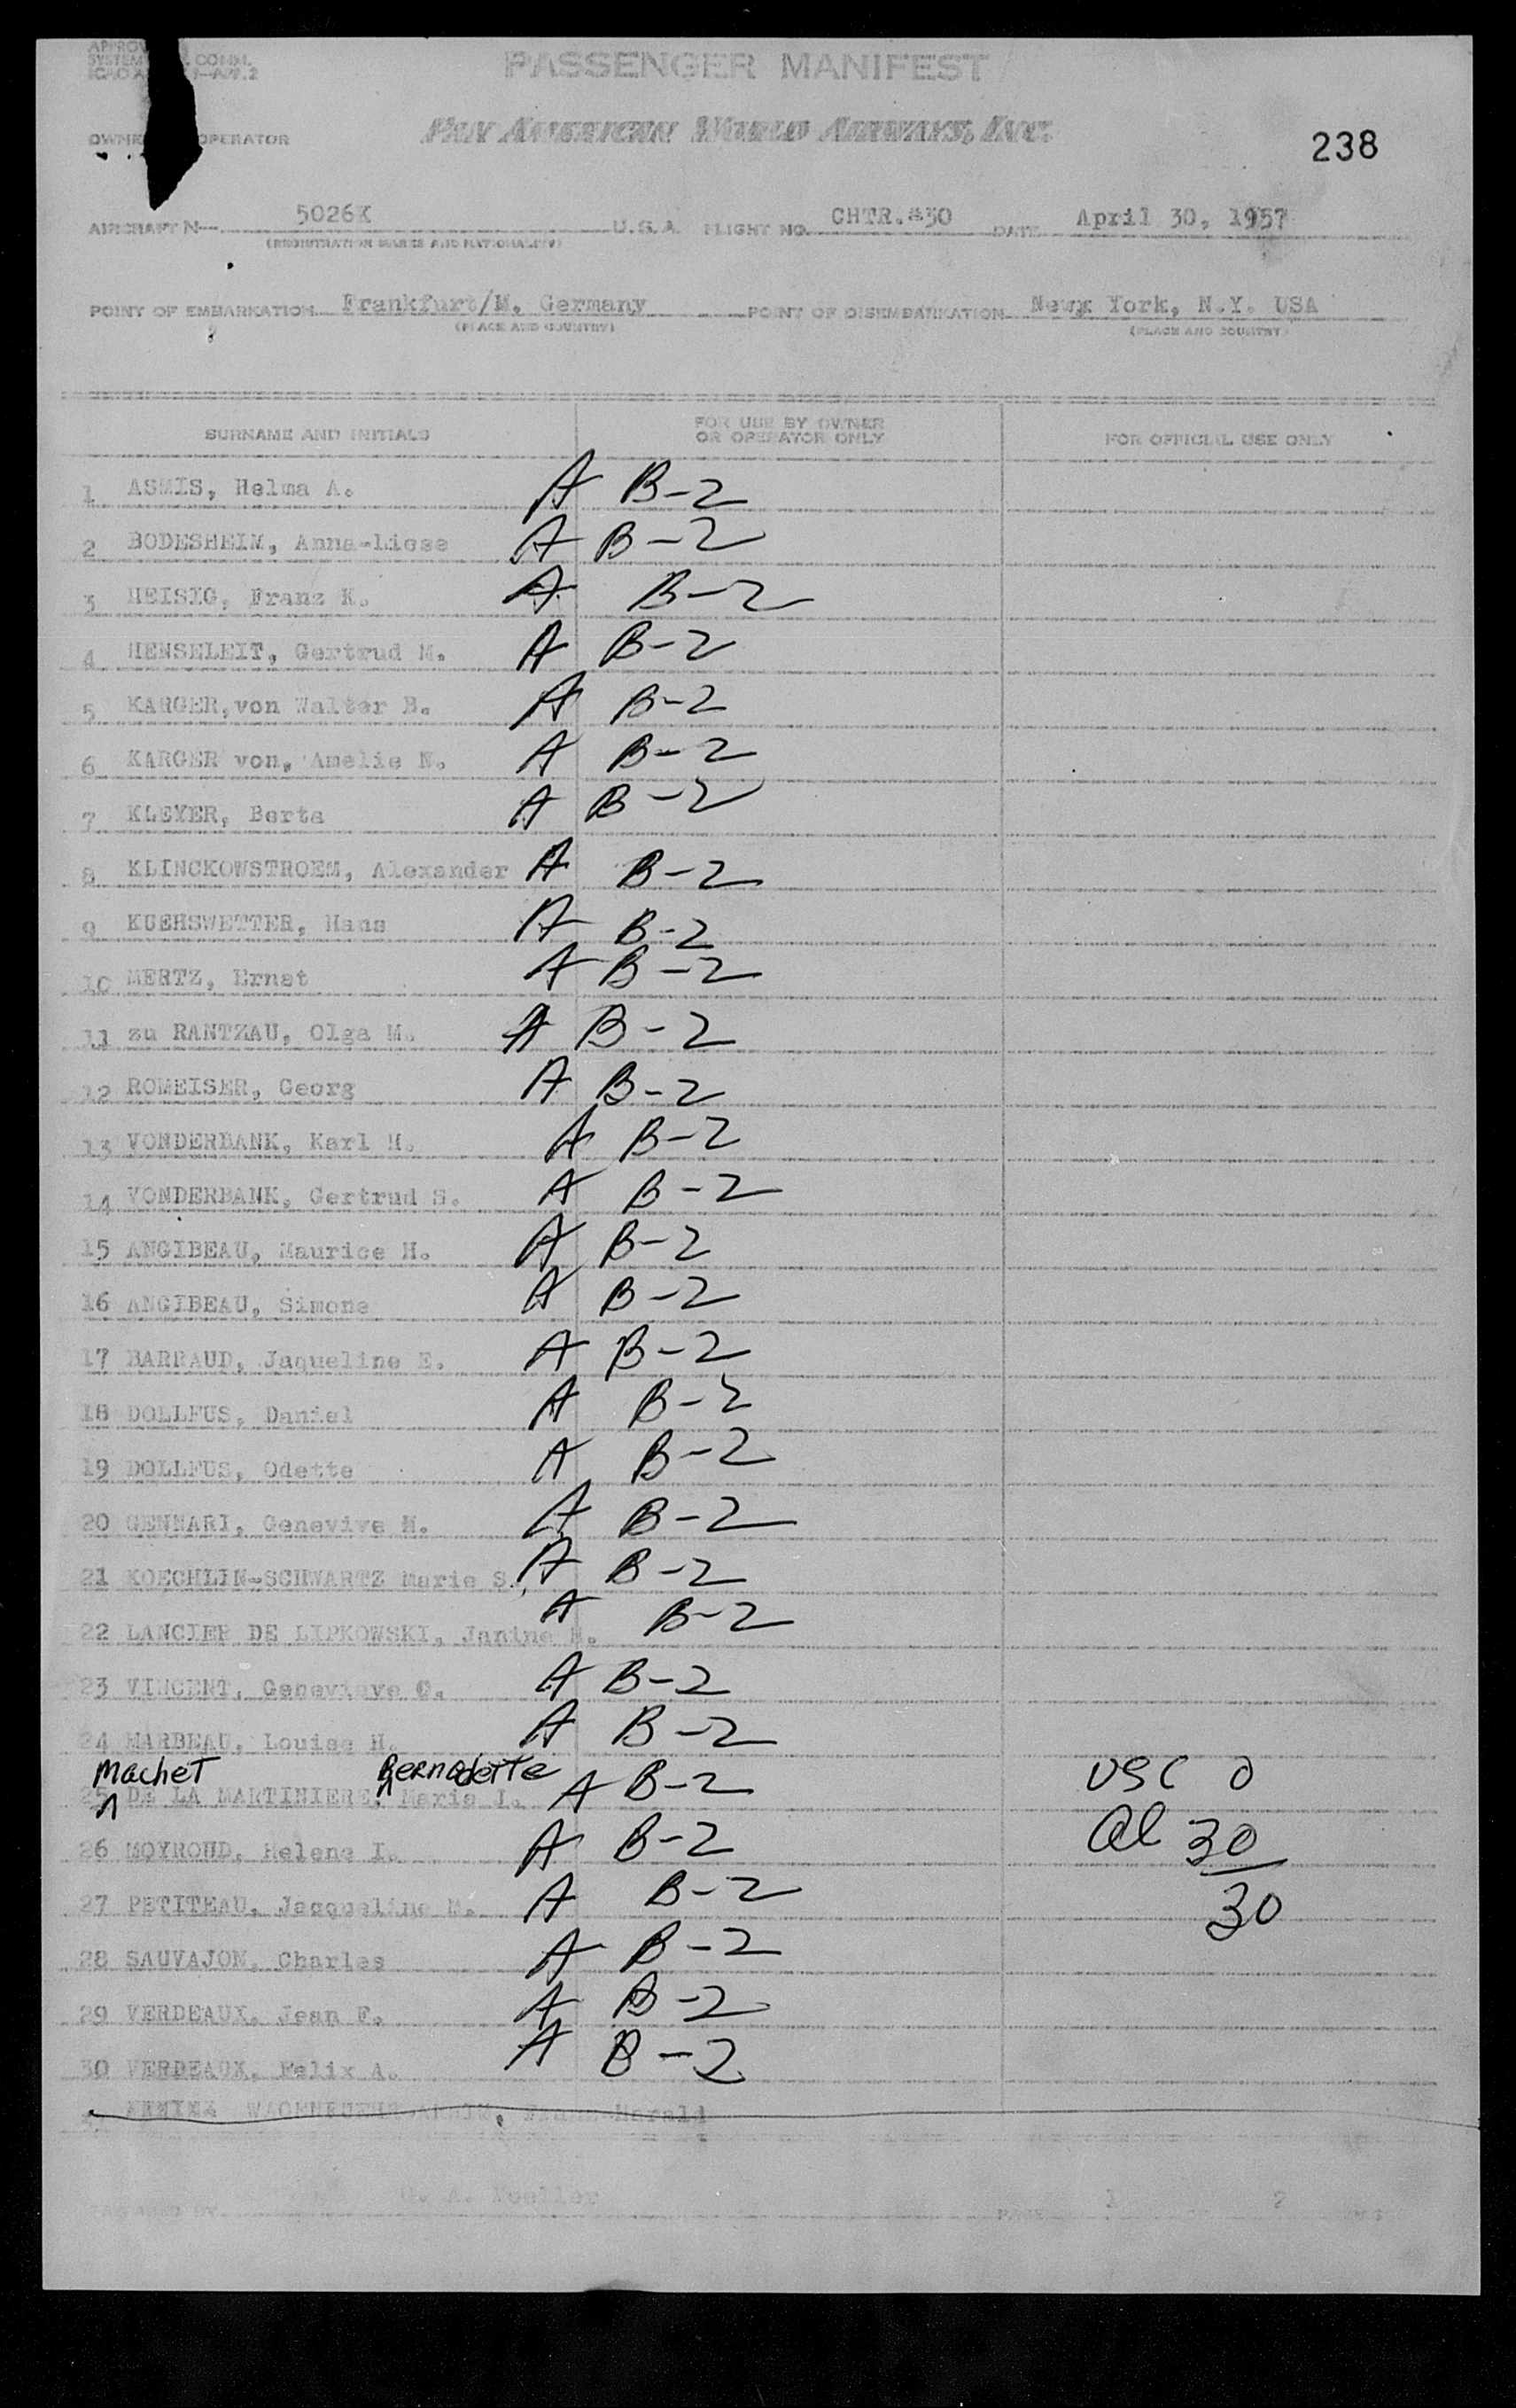 PASSENGER MANIFEST
PAN AMERICAN WORLD AIRWAYS, INC.
238
OPERATOR
AIRCRAFT N 5026K U.S.A. FLIGHT NO. CHTR.#30 DATE April 30, 1957
(REGISTRATION MARKS AND NATIONALITY)
POINT OF EMBARKATION Frankfurt/M. Germany POINT OF DISEMBARKATION Newx York, N.Y. USA
(PLACE AND COUNTRY) (PLACE AND COUNTRY)
SURNAME AND INITIALS FOR USE BY OWNER OR OPERATOR ONLY FOR OFFICIAL USE ONLY
1 ASMIS, Helma A. A B-2
2 BODESHEIM, Anna-Liese A B-2
3 HEISIG, Franz K. A B-2
4 HENSELEIT, Gertrud M. A B-2
5 KARGER, von Walter B. A B-2
6 KARGER von, Amelie N. A B-2
7 KLEYER, Berta A B-2
8 KLINCKOWSTROEM, Alexander A B-2
9 KUEHSWETTER, Hans A B-2
10 MERTZ, Ernst A B-2
11 zu RANTZAU, Olga M. A B-2
12 ROMEISER, Georg A B-2
13 VONDERBANK, Karl H. A B-2
14 VONDERBANK, Gertrud S. A B-2
15 ANGIBEAU, Maurice H. A B-2
16 ANGIBEAU, Simone A B-2
17 BARRAUD, Jaqueline E. A B-2
18 DOLLFUS, Daniel A B-2
19 DOLLFUS, Odette A B-2
20 GENNARI, Genevive M. A B-2
21 KOECHLIN-SCHWARTZ Marie S. A B-2
22 LANCIER DE LIPKOWSKI, Janine M. A B-2
23 VINCENT, Genevieve C. A B-2
24 MARBEAU, Louise H. A B-2
Machet Bernadette
25 DE LA MARTINIERE, Marie I. A B-2 USC 0
26 MOYROUD, Helene I. A B-2 Al 30
27 PETITEAU, Jacqueline M. A B-2 30
28 SAUVAJON, Charles A B-2
29 VERDEAUX, Jean F. A B-2
30 VERDEAUX, Felix A. A B-2
PAGE 1 2